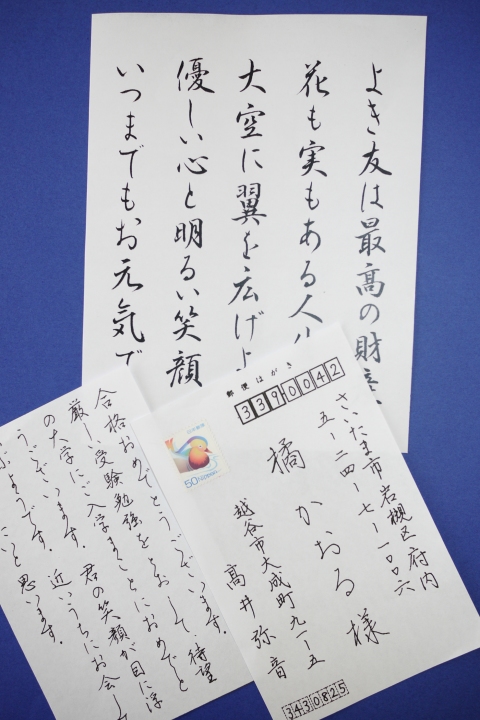 よき友は最高の財産
花も実もある人生
大空に翼を広げよ
優しい心と明るい笑顔
いつまでもお元気で
郵便はがき
3390042
さいたま市岩槻区府内
五ー二四ー七ー一〇〇六
橘かおる様
50
NIPPON
越谷市大成町九ー一ー五
高井弥音
3430825
合格おめでとうございます。
厳しい受験勉強をとおして、待望
の大学にご入学まことにおめでと
うございます。君の笑顔が目に浮
ぶようです。近いうちにお会いして
こと思います。